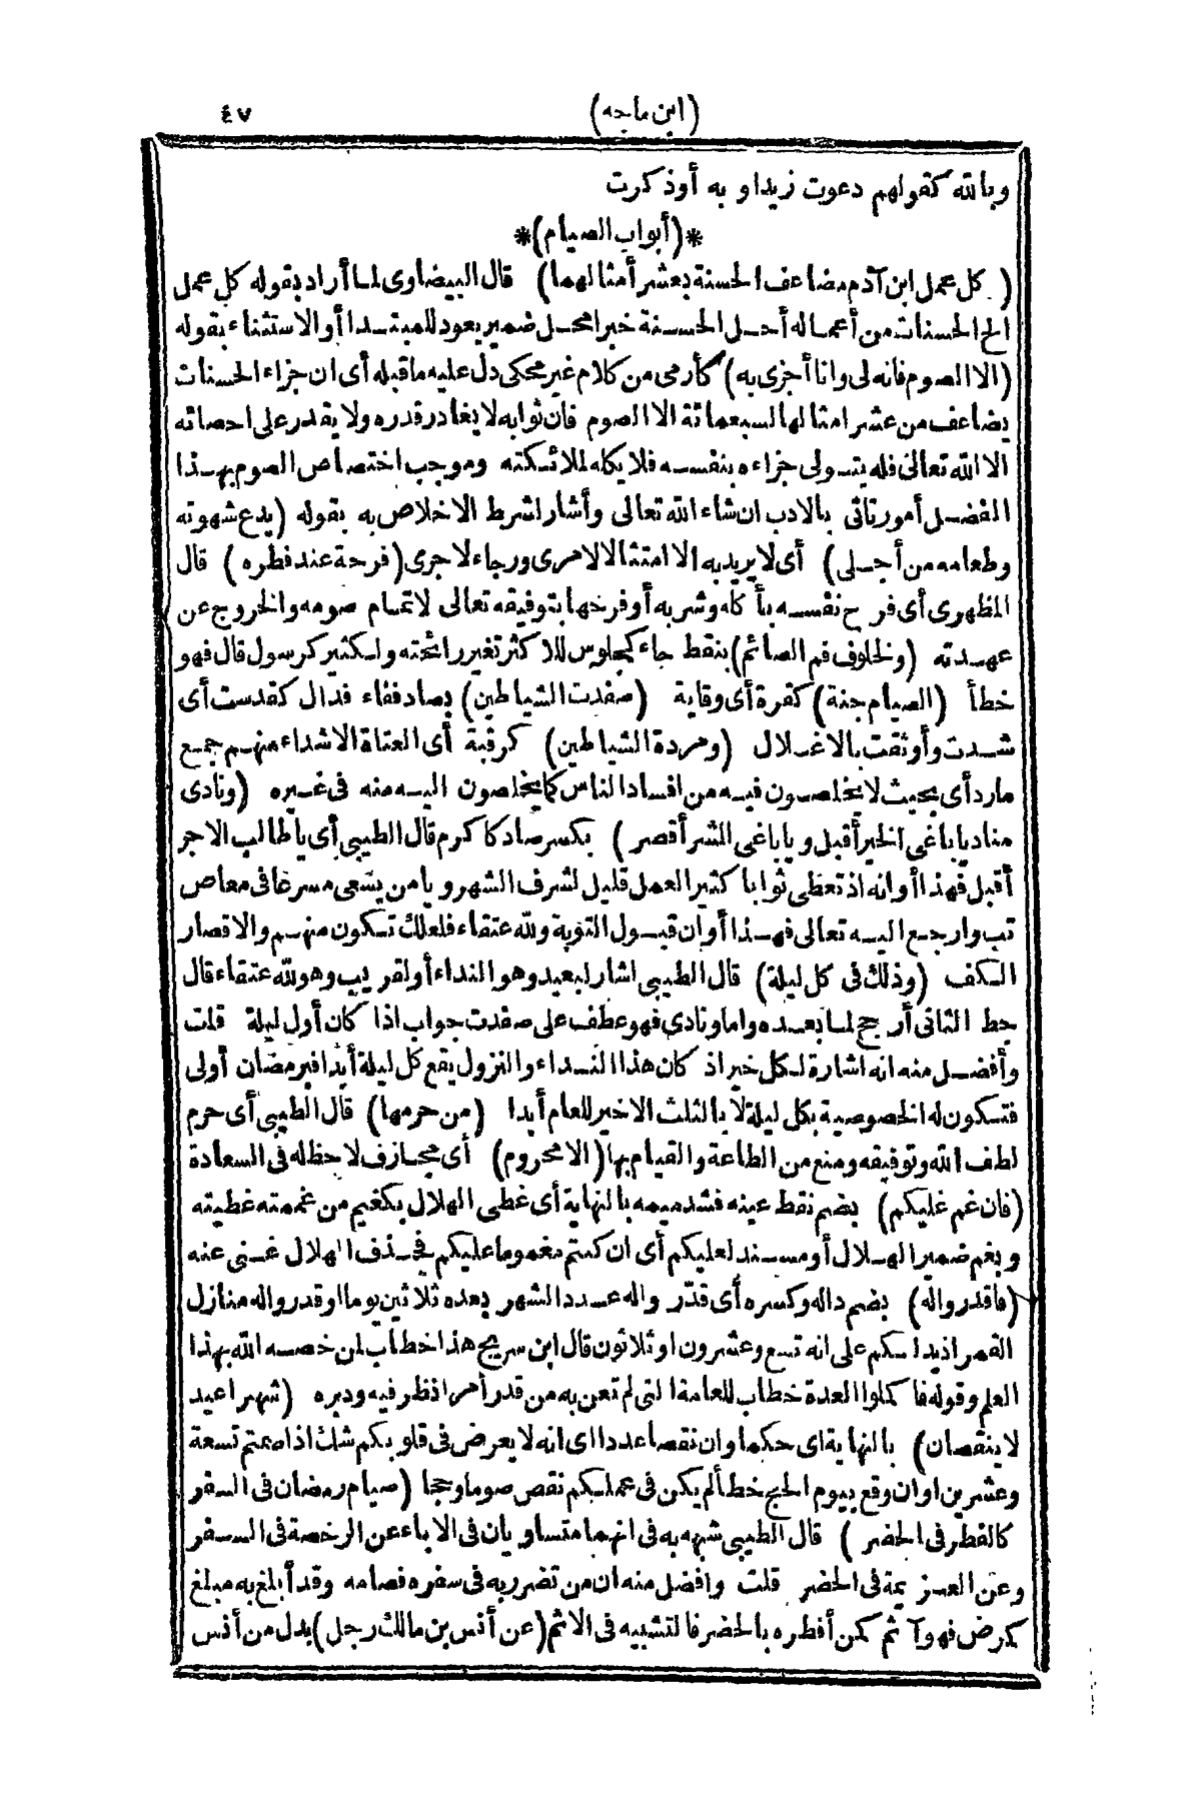 (ابن ماجه) ٤٧
وبالله كقولهم دعوت زيدا و به أوذكرت
*(أبواب الصيام)*
(كل عمل ابن آدم مضاعف الحسنة بعشر أمثالهما) قال البيضاوى لما أراد بقوله كل عمل
الخ الحسنات من أعماله أحل الحسنة خبرا محل ضمير يعود للمبتدا أو الاستثناء بقوله
(الا الصوم فانه لى وانا أجزى به) كأرمى من كلام غير محكى دل عليه ماقبله أى ان جزاء الحسنات
يضاعف من عشر امثالها لسبعمائة الا الصوم فان ثوابه لا يغادر قدره ولا يقدر على احصائه
الا الله تعالى فله يتولى جزاءه بنفسه فلا يكله لملائكته وموجب اختصاص الصوم بهذا
الفضل أمور تاتى بالادب ان شاء الله تعالى وأشار لشرط الاخلاص به بقوله (يدع شهوته
وطعامه من أجلى) أى لا يريد به الا امتثالا لامرى ورجاء لاجرى (فرحة عند فطره) قال
المظهرى أى فرح نفسه بأكله وشربه أو فرحها بتوفيقه تعالى لاتمام صومه والخروج عن
عهدته (ولخلوف فم الصائم) بنقط خاء كجلوس للاكثر تغير رائحته ولكثير كرسول قال فهو
خطأ (الصيام جنة) كقرة أى وقاية (صفدت الشياطين) بصاد ففاء فدال كقدست أى
شدت وأوثقت بالاغلال (ومردة الشياطين) كرقبة أى العتاة الاشداء منهم جمع
مارد أى بحيث لا يخلصون فيه من افساد الناس كما يخلصون اليه منه فى غيره (ونادى
مناد يا باغى الخير أقبل ويا باغى الشر أقصر) بكسر صاد كاكرم قال الطيبى أى يا طالب الاجر
أقبل فهذا أوانه اذ تعطى ثوابا كثير العمل قليل لشرف الشهر ويا من يسعى مسرعا فى معاص
تب وارجع اليه تعالى فهذا أوان قبول التوبة ولله عتقاء فلعلك تكون منهم والاقصار
الكف (وذلك فى كل ليلة) قال الطيبى اشار لبعيد وهو النداء أو لقريب وهو لله عتقاء قال
حط الثانى أرجح لما بعده واما ونادى فهو عطف على صفدت جواب اذا كان أول ليلة قلت
وأفضل منه انه اشارة لكل خير اذ كان هذا النداء والنزول يقع كل ليلة أبدا فبرمضان أولى
فتكون له الخصوصية بكل ليلة لا بالثلث الاخير للعام أبدا (من حرمها) قال الطيبى أى حرم
لطف الله وتوفيقه ومنع من الطاعة والقيام بها (الا محروم) أى مجازف لا حظ له فى السعادة
(فان غم عليكم) بضم نقط عينه فشد ميمه بالنهاية أى غطى الهلال بكغيم من غممته غطيته
وبغم ضمير الهلال أو مسند لعليكم أى ان كنتم مغموما عليكم فحذف الهلال غنى عنه
(فاقدرواله) بضم داله وكسره أى قدّر واله عدد الشهر بعده ثلاثين يوما او قدرواله منازل
القمر اذ يدلكم على انه تسع وعشرون او ثلاثون قال ابن سريج هذا خطاب لمن خصه الله بهذا
العلم وقوله فاكملوا العدة خطاب للعامة التى لم تعن به من قدر أمرا اذ نظر فيه ودبره (شهرا عيد
لا ينقصان) بالنهاية اى حكما وان نقصا عددا اى انه لا يعرض فى قلوبكم شك اذا صمتم تسعة
وعشرين او ان وقع بيوم الحج خطأ لم يكن فى عملكم نقص صوما وحجا (صيام رمضان فى السفر
كالفطر فى الحضر) قال الطيبى شبهه به فى انهما متساويان فى الاباء عن الرخصة فى السفر
وعن العزيمة فى الحضر قلت وافضل منه ان من تضرر به فى سفره فصامه وقد أبلغ به مبلغ
كمرض فهو آثم كمن أفطره بالحضر فالتشبيه فى الاثم (عن أنس بن مالك رجل) بدل من أنس